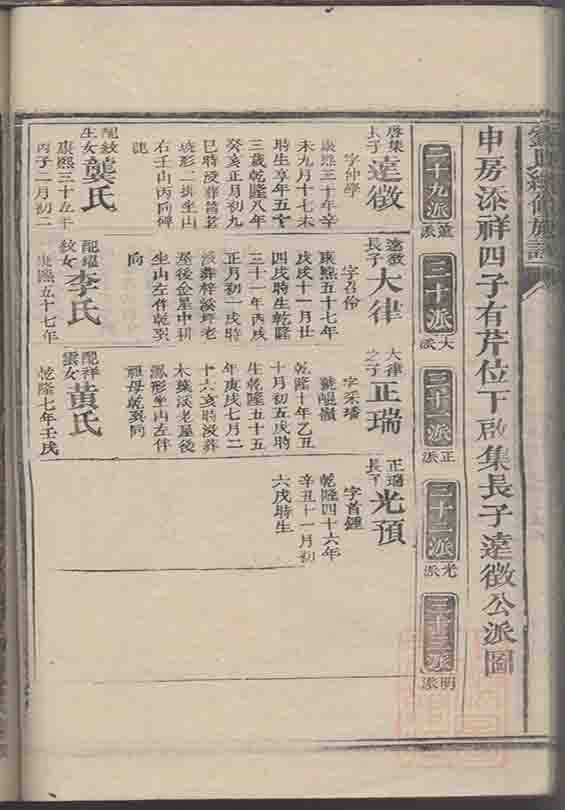 申房添祥四子有芹位下啟集長子達徵公派圖
二十九派
三十派
大派
三十一派
正派
三十二派
光派
三十三派
明派
啓集
長子
達徵
字仲學
康熙三十年辛
未九月十七未
時生享年五十
三歲乾隆八年
癸亥正月初九
巳時沒葬
形二排坐山
右壬山丙向碑
配紋
生女
龔氏
康熙三十五年
丙子二月初二
達徵
長子
大律
字召伶
康熙五十七年
戊戌十一月廿
四戌時生乾隆
三十一年丙戌
正月初一戌時
沒葬梓溪坪老
屋後金星中排
坐山左伴乾巽
向
配
紋女
李氏
康熙五十七年
大律
之子
正瑞
字采璠
號崐嶺
乾隆十年乙丑
十月初五戌時
生乾隆五十五
年庚戌七月二
十六亥時沒葬
木溪老屋後
鳳形坐山左伴
祖母乾巽向
配祥
雲女
黃氏
乾隆七年壬戌
正瑞
長子
光預
字首鍾
乾隆四十六年
辛丑十一月初
六戌時生